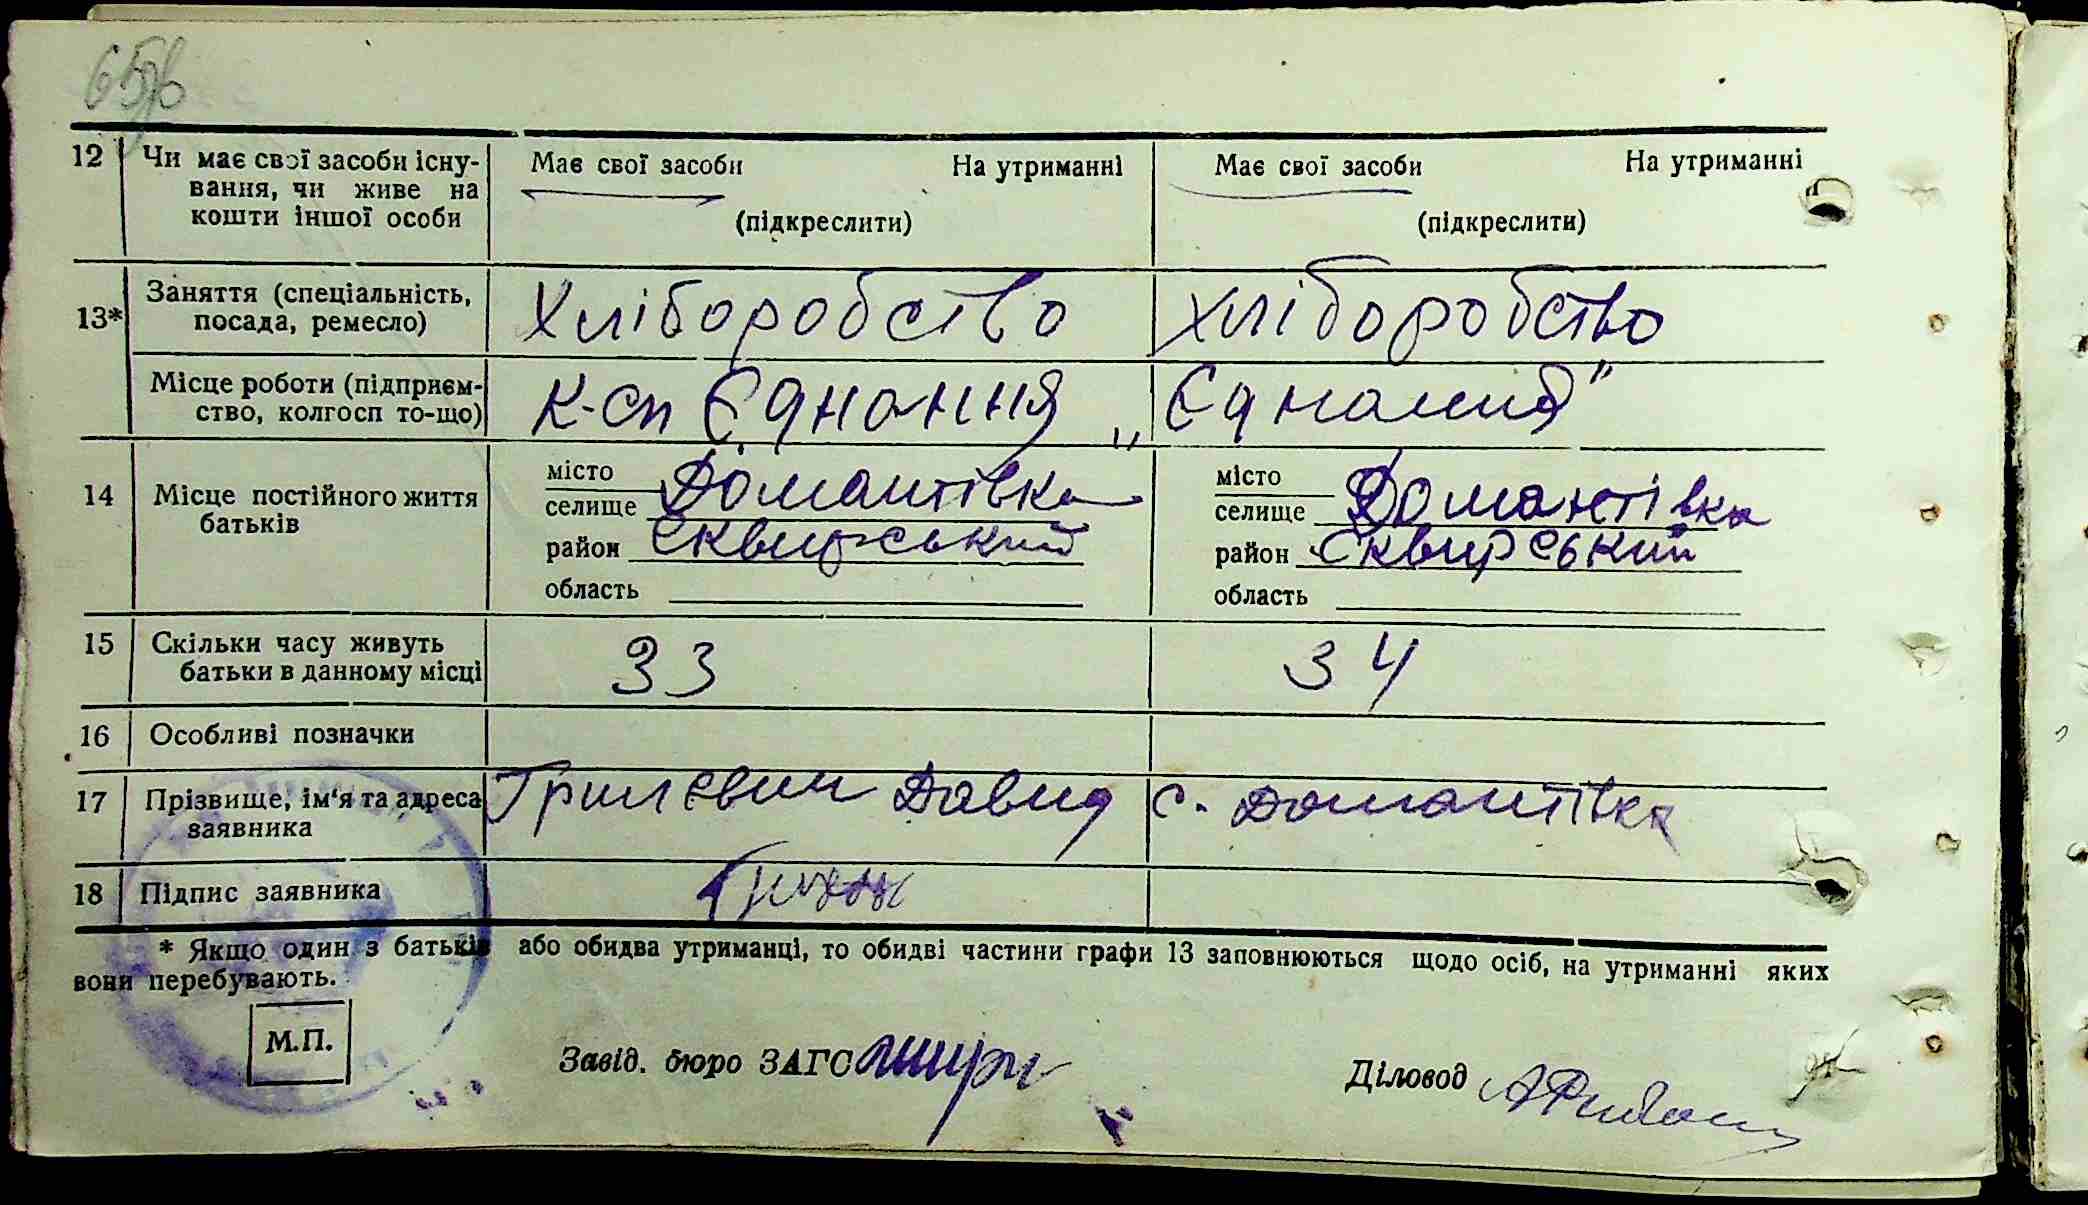 12 Чи має свої засоби існу-
вання, чи живе на
кошти іншої особи
Має свої засоби На утриманні
(підкреслити)
Має свої засоби На утриманні
(підкреслити)
13* Заняття (спеціальність,
посада, ремесло)
Хліборобство
Хліборобство
Місце роботи (підприєм-
ство, колгосп то-що)
К-сп Єднання
„Єднання"
14 Місце постійного життя
батьків
місто
селище Домантівка
район Сквирський
область
місто
селище Домантівка
район Сквирський
область
15 Скільки часу живуть
батьки в данному місці
33
34
16 Особливі позначки
17 Прізвище, ім'я та адреса
заявника
Давид с. Домантівка
18 Підпис заявника
* Якщо один з батьків або обидва утриманці, то обидві частини графи 13 заповнюються щодо осіб, на утриманні яких
вони перебувають.
М.П.
Завід. бюро ЗАГС
Діловод